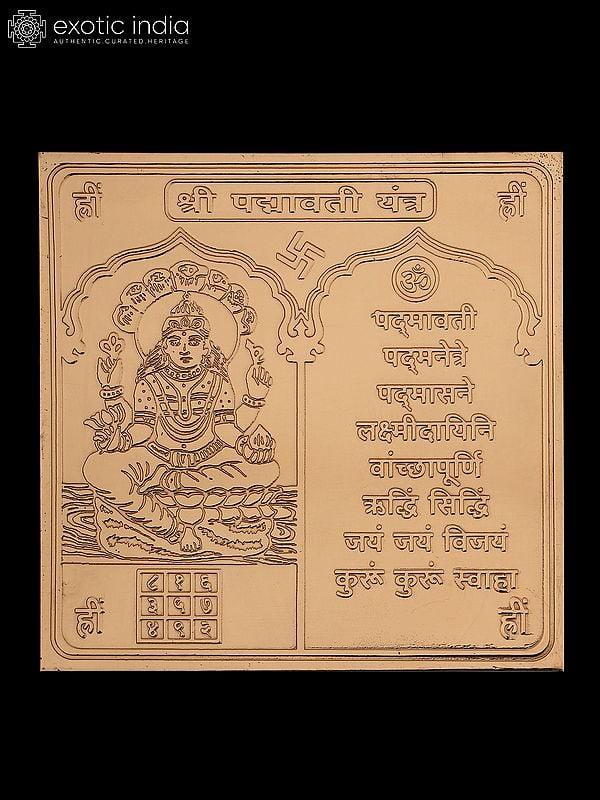 exotic india
AUTHENTIC. CURATED. HERITAGE
ह्रीं
श्री पद्मावती यंत्र
ह्रीं
ॐ
पद्‌मावती
पद्‌मनेत्रे
पद्‌मासने
लक्ष्मीदायिनि
वांच्छापूर्णि
ऋद्धिं सिद्धिं
जयं जयं विजयं
कुरूं कुरूं स्वाहा
ह्रीं
८ १ ६
३ ५ ७
४ ९ २
ह्रीं